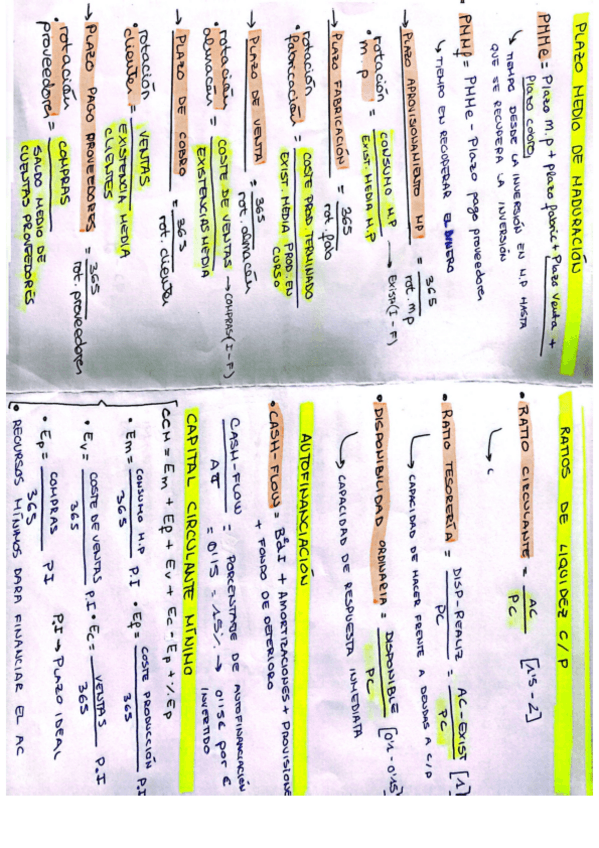 PLAZO MEDIO DE MADURACIÓN
PMMe = Plazo m.p + plazo fabric + Plazo venta +
Plazo cobro
↳ TIEMPO DESDE LA INVERSIÓN EN M.P HASTA
QUE SE RECUPERA LA INVERSIÓN
PMMf = PMMe - Plazo pago proveedores
↳ TIEMPO EN RECUPERAR EL DINERO
→ PLAZO APROVISIONAMIENTO MP = 365
rot. m.p
• rotación m.p = CONSUMO M.P → EXIST. (I-F)
EXIST. MEDIA M.P
→ PLAZO FABRICACIÓN = 365
rot. fab
• rotación fabricación = COSTE PROD. TERMINADO
EXIST. MEDIA PROD. EN
CURSO
→ PLAZO DE VENTA = 365
rot. almacén
• rotación almacén = COSTE DE VENTAS → COMPRAS (I-F)
EXISTENCIAS MEDIA
→ PLAZO DE COBRO = 365
rot. clientes
• rotación clientes = VENTAS
EXISTENCIA MEDIA
CLIENTES
→ PLAZO PAGO PROVEEDORES = 365
rot. proveedores
• rotación proveedores = COMPRAS
SALDO MEDIO DE
CUENTAS PROVEEDORES
RATIOS DE LIQUIDEZ C/P
• RATIO CIRCULANTE = AC [1'5-2]
PC
↳ C
• RATIO TESORERÍA = DISP-REALIZ = AC-EXIST [1]
PC PC
↳ CAPACIDAD DE HACER FRENTE A DEUDAS A C/P
• DISPONIBILIDAD ORDINARIA = DISPONIBLE [0'1-0'15]
PC
↳ CAPACIDAD DE RESPUESTA INMEDIATA
AUTOFINANCIACIÓN
• CASH-FLOW = BºdI + AMORTIZACIONES + PROVISIONE
+ FONDO DE DETERIORO
CASH-FLOW = PORCENTAJE DE AUTOFINANCIACIÓN
AT = 0'15 = 15% → 0'15€ por €
INVERTIDO
CAPITAL CIRCULANTE MÍNIMO
CCM = Em + Ef + Ev + Ec - Ep + % Ep
• Em = CONSUMO M.P P.I • Ef = COSTE PRODUCCIÓN P.I
365 365
• Ev = COSTE DE VENTAS P.I • Ec = VENTAS P.I
365 365
• Ep = COMPRAS P.I P.I → PLAZO IDEAL
365
• RECURSOS MÍNIMOS PARA FINANCIAR EL AC